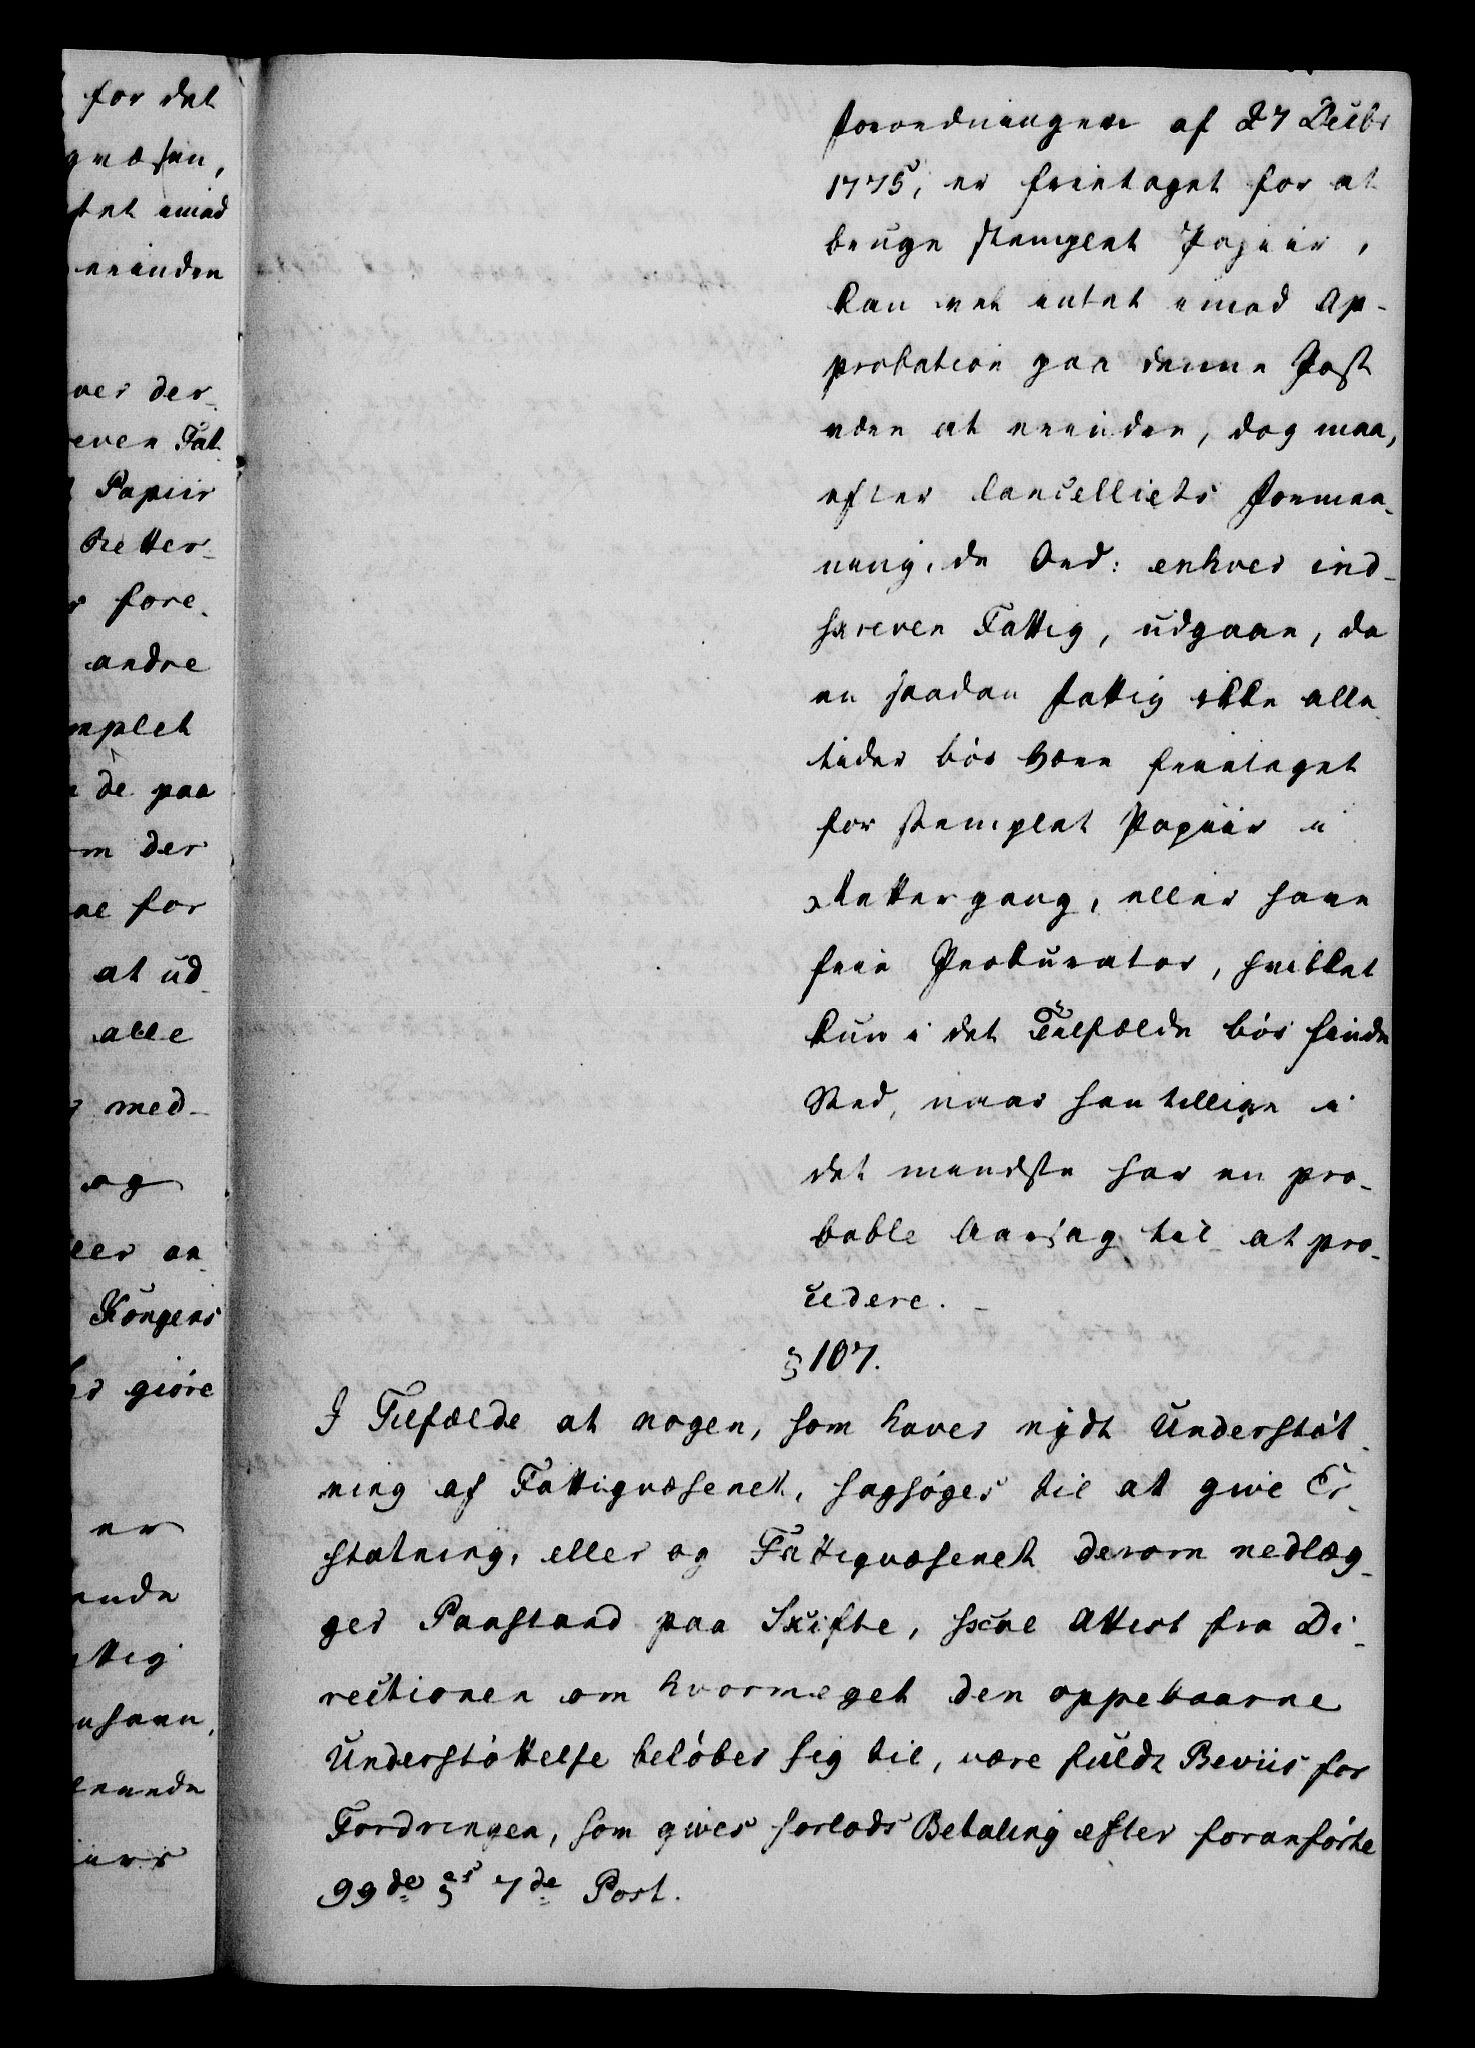 for det
gvæsen,
tet imod
erindre
ver der-
even Fat
Papiir
Retter-
fore-
andre
mplet
de paa
m der
ne for
at ud-
alle
med-
og
eer an-
Kongens
giøre
er
ende
ttig
Forordningen af 27 Decbr
1775, er frietaget for at
bruge stemplet Papiir,
kan vel intet imod Ap-
probation paa denne Post
være at erindre, dog maa,
efter Cancelliets Formee-
ning, de Ord: enhver ind-
skreven Fattig, udgaae, da
en saadan Fattig ikke alle-
tider bør være frietaget
for stemplet Papiir i
Rettergang, eller have
frie Procurator, hvilket
kun i det Tilfælde bør finde
Sted, naar han tillige i
det mindste har en pro-
bable Aarsag til at pro-
cedere. -
§ 107.
I Tilfælde at nogen, som haver nydt Understøt-
ning af Fattigvæsenet, sagsøges til at give Er-
statning, eller og Fattigvæsenet derom nedlæg-
ger Paastand paa Skifte, skal Attest fra Di-
rectionen om hvormeget den oppebaarne
Understøttelse beløber sig til, være fuldt Beviis for
Fordringen, som gives forlods Betaling efter foranførte
99de §s 7de Post.